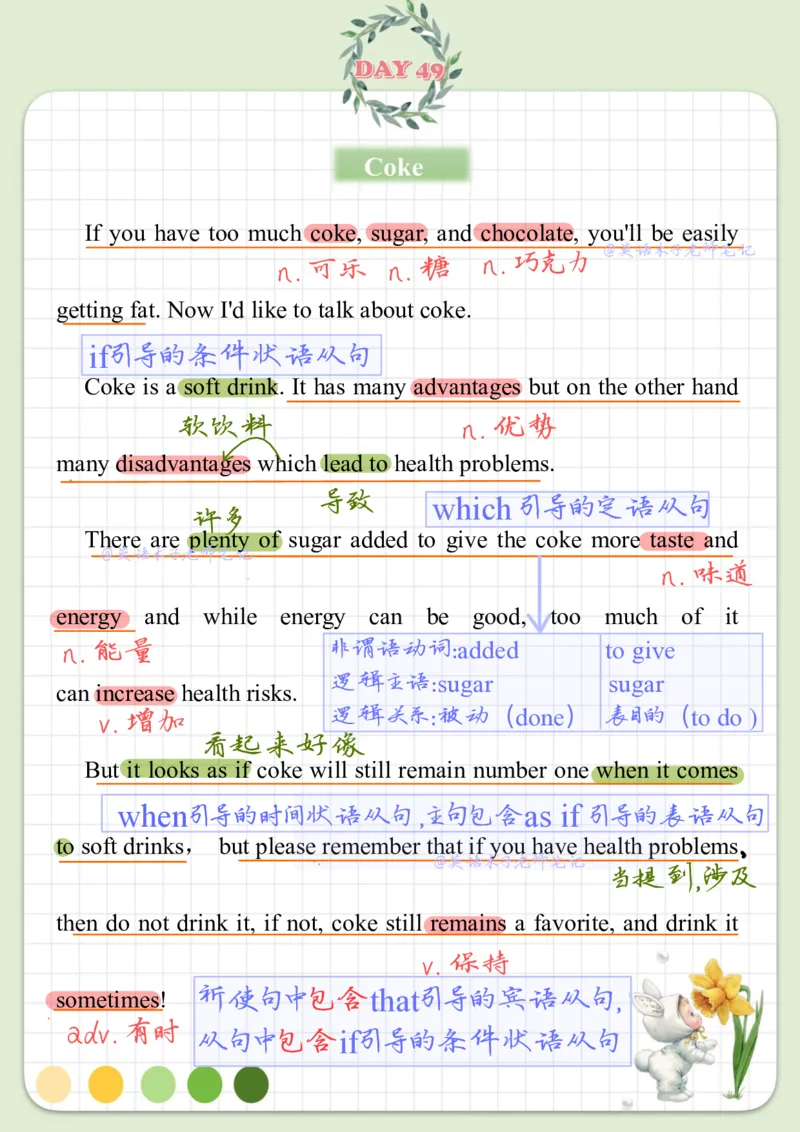 DAY 49
Coke
If you have too much coke, sugar, and chocolate, you'll be easily
@英语木子老师笔记
n. 可乐 n. 糖 n. 巧克力
getting fat. Now I'd like to talk about coke.
if引导的条件状语从句
Coke is a soft drink. It has many advantages but on the other hand
软饮料 n. 优势
many disadvantages which lead to health problems.
许多 导致 which 引导的定语从句
There are plenty of sugar added to give the coke more taste and
@英语木子老师笔记
n. 味道
energy and while energy can be good, too much of it
n. 能量
非谓语动词:added to give
逻辑主语:sugar sugar
can increase health risks.
v. 增加
逻辑关系:被动（done） 表目的（to do )
看起来好像
But it looks as if coke will still remain number one when it comes
when引导的时间状语从句,主句包含as if 引导的表语从句
to soft drinks， but please remember that if you have health problems、
@英语木子老师笔记
当提到,涉及
then do not drink it, if not, coke still remains a favorite, and drink it
v. 保持
sometimes!
adv. 有时
祈使句中包含that引导的宾语从句,
从句中包含if引导的条件状语从句